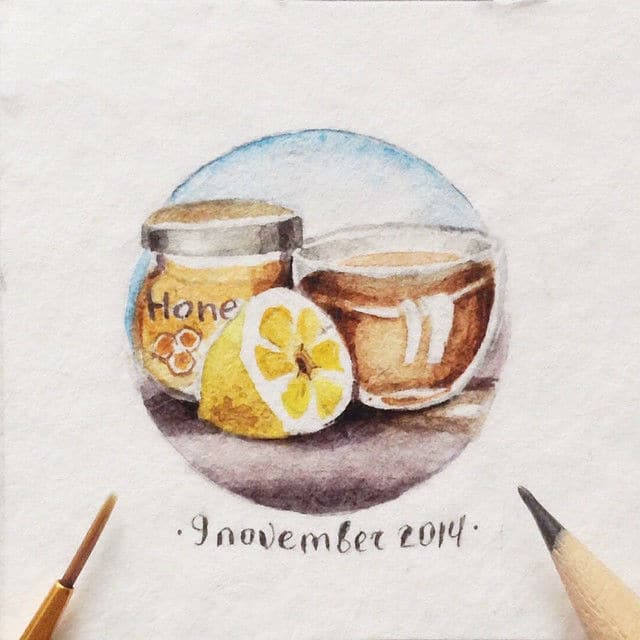 Hone
·9 november 2014·